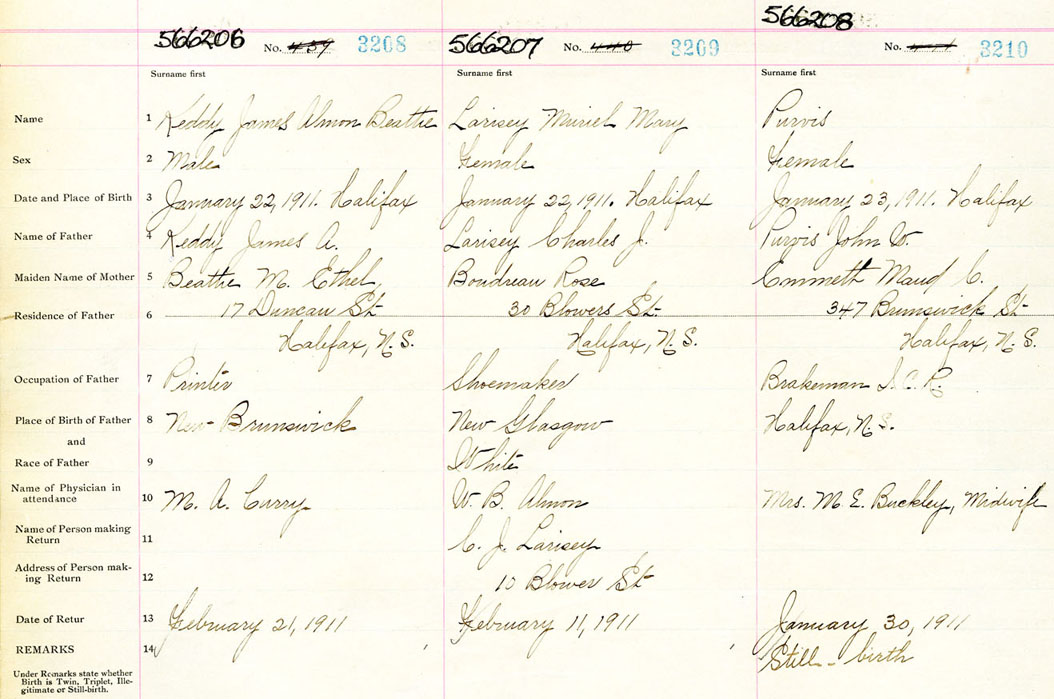 566206 No. 439 3208 566207 No. 440 3209 566208 No. 441 3210
Surname first Surname first Surname first
Name 1 Keddy James Almon Beattie Larisey Muriel Mary Purvis
Sex 2 Male Female Female
Date and Place of Birth 3 January 22, 1911. Halifax January 22, 1911. Halifax January 23, 1911. Halifax
Name of Father 4 Keddy James A. Larisey Charles J. Purvis John W.
Maiden Name of Mother 5 Beattie M. Ethel Boudreau Rose Emmett Maud C.
Residence of Father 6 17 Duncan St 30 Blowers St 347 Brunswick St
Halifax, N.S. Halifax, N.S. Halifax, N.S.
Occupation of Father 7 Printer Shoemaker Brakeman I.C.R.
Place of Birth of Father 8 New Brunswick New Glasgow Halifax, N.S.
and
Race of Father 9 White
Name of Physician in
attendance 10 M. A. Curry W. B. Almon Mrs. M. E. Buckley, Midwife
Name of Person making
Return 11 C. J. Larisey
Address of Person mak-
ing Return 12 10 Blower St
Date of Retur 13 February 21, 1911 February 11, 1911 January 30, 1911
REMARKS 14 Still-birth
Under Remarks state whether
Birth is Twin, Triplet, Ille-
gitimate or Still-birth.